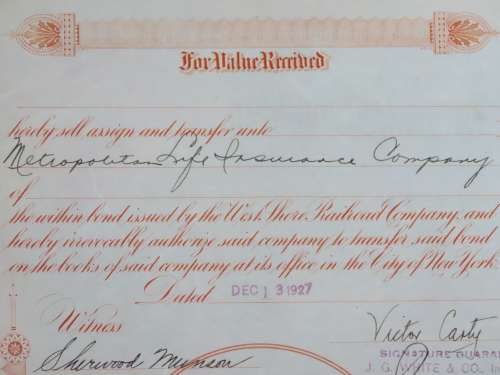 For Value Received
hereby sell assign and transfer unto
Metropolitan Life Insurance Company
of
the within bond issued by the West Shore Railroad Company, and
hereby irrevocally authorize said company to transfer said bond
on the books of said company at its office, in the City of New York.
Dated DEC 13 1927
Witness
Victor Carty
SIGNATURE GUARA
Sherwood Munson
J. G. WHITE & CO. I